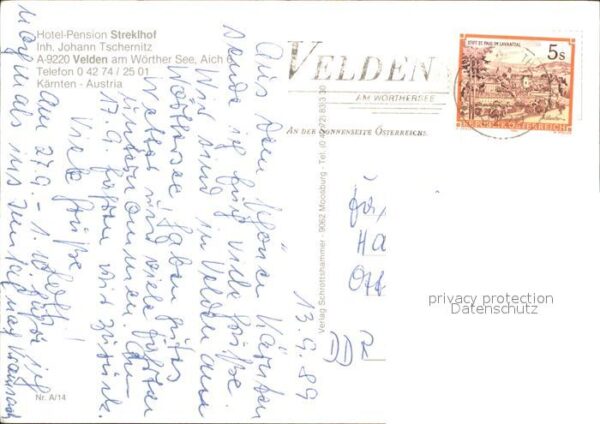 Hotel-Pension Streklhof
Inh. Johann Tschernitz
A-9220 Velden am Wörther See, Aich 6
Telefon 0 42 74 / 25 01
Kärnten - Austria
VELDEN
AM WÖRTHERSEE
AN DER SONNENSEITE ÖSTERREICHS.
STIFT ST. PAUL IM LAVANTTAL
5s
REPUBLIK ÖSTERREICH
13.9.89
Aus dem schönen Kärnten
sende ich Euch viele Grüße
Wir sind in Velden am
Wörthersee haben gutes
Wetter und viele Fahrten
unternommen. Am
17.9. fahren wir zurück.
Viele Grüße
Am 27.9. - 1.10. fahre ich
nochmals ins
Verlag Schrottshammer - 9062 Moosburg - Tel. (0 42 72) 833 30
HA
Ott
DDR
privacy protection
Datenschutz
Nr. A/14